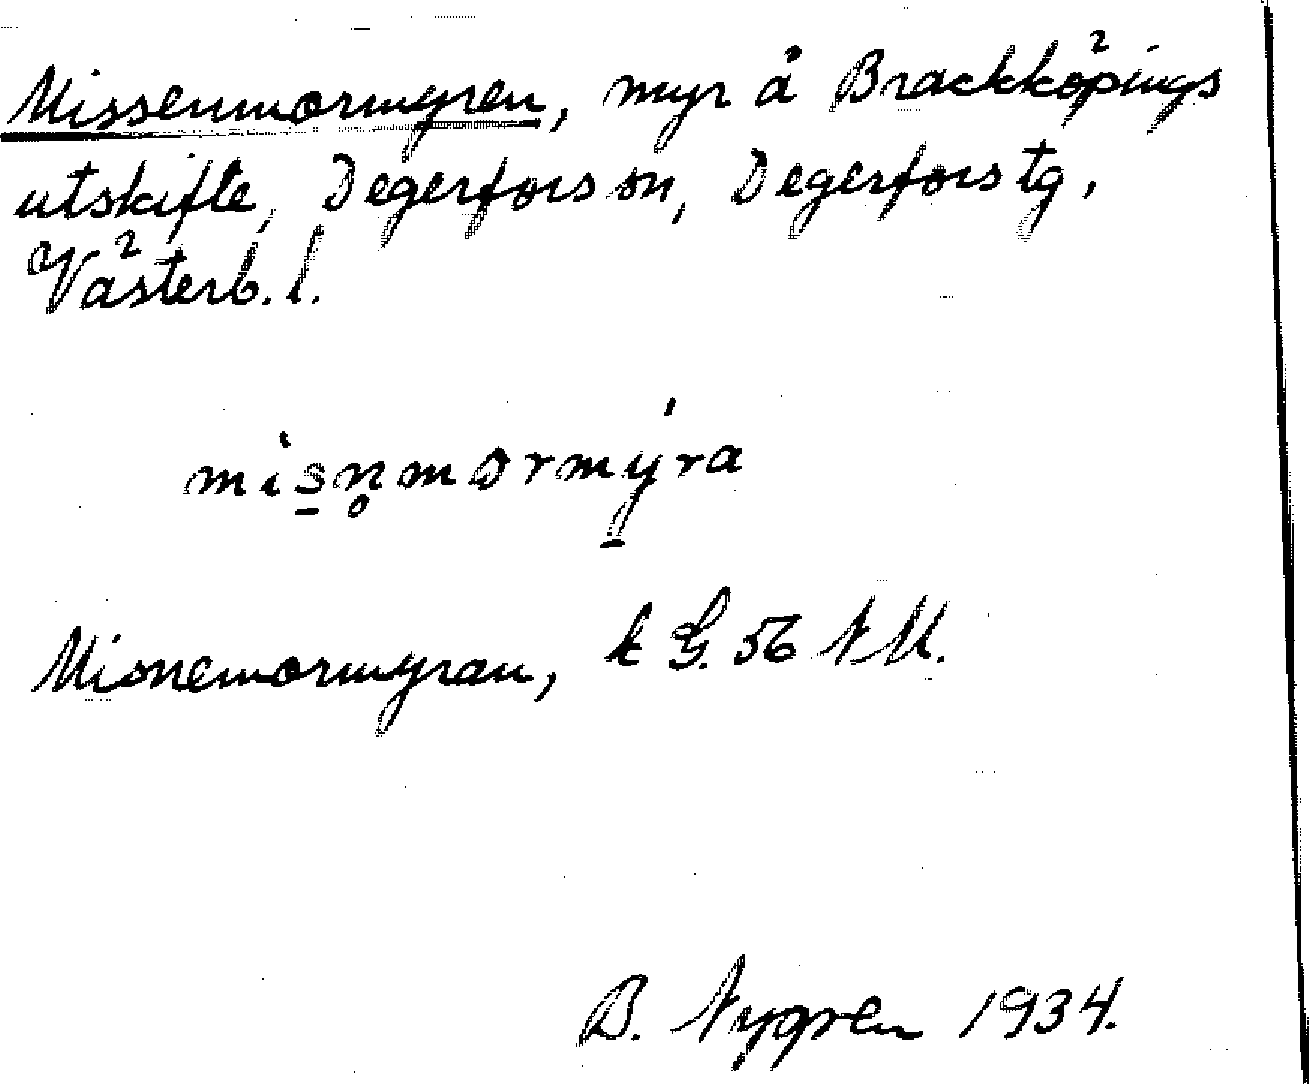 Missenmormyren, myr å Brackköpings
utskifte, Degerfors sn, Degerfors tg,
Västerb. l.
misn̥mormýra
Misnemormyran, k G. 56 NM.
B. Nygren 1934.